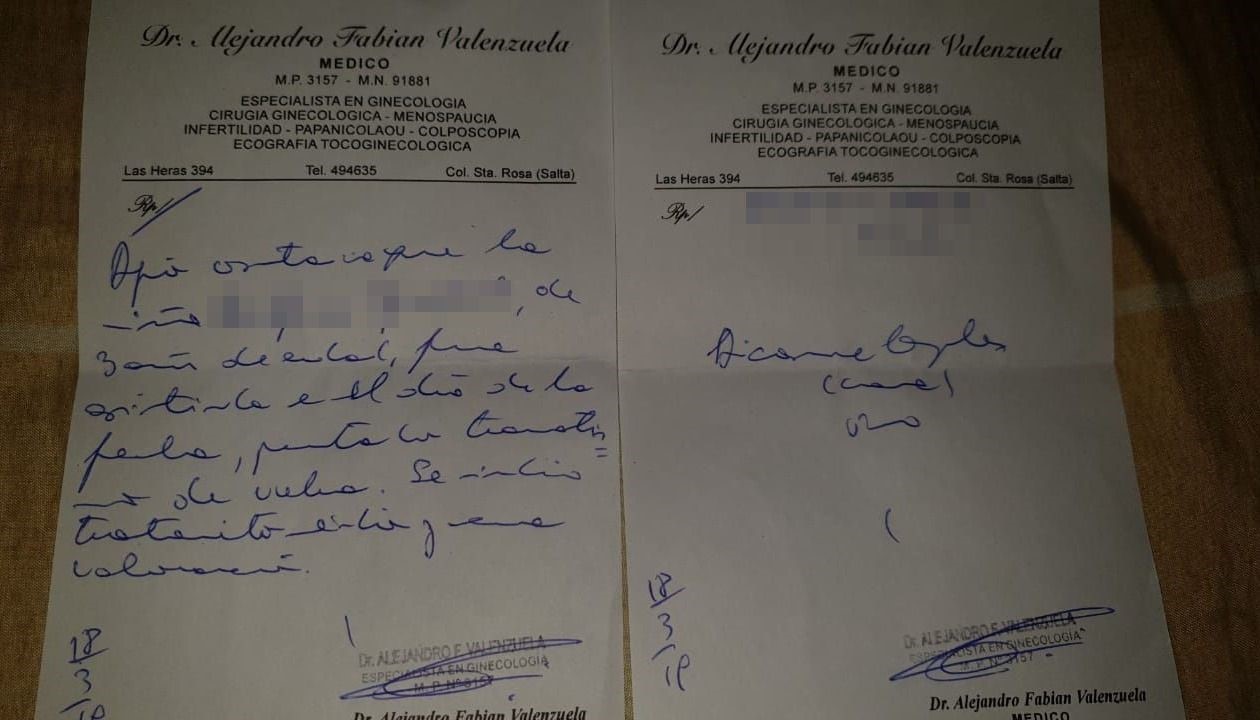 Dr. Alejandro Fabian Valenzuela
MEDICO
M.P. 3157 - M.N. 91881
ESPECIALISTA EN GINECOLOGIA
CIRUGIA GINECOLOGICA - MENOSPAUCIA
INFERTILIDAD - PAPANICOLAOU - COLPOSCOPIA
ECOGRAFIA TOCOGINECOLOGICA
Las Heras 394 Tel. 494635 Col. Sta. Rosa (Salta)
Rp/
que la
niña , de
3 años de edad, fue
asistida en el día de la
fecha, traumatis=
mo de vulva. Se indico
tratamiento y nueva
valoración.
18
3
19
Dr. ALEJANDRO F. VALENZUELA
ESPECIALISTA EN GINECOLOGIA
M. P. Nº 3157
Dr. Alejandro Fabian Valenzuela
Dr. Alejandro Fabian Valenzuela
MEDICO
M.P. 3157 - M.N. 91881
ESPECIALISTA EN GINECOLOGIA
CIRUGIA GINECOLOGICA - MENOSPAUCIA
INFERTILIDAD - PAPANICOLAOU - COLPOSCOPIA
ECOGRAFIA TOCOGINECOLOGICA
Las Heras 394 Tel. 494635 Col. Sta. Rosa (Salta)
Rp/
(crema)
uno
18
3
19
Dr. ALEJANDRO F. VALENZUELA
ESPECIALISTA EN GINECOLOGIA
M. P. Nº 3157
Dr. Alejandro Fabian Valenzuela
MEDICO